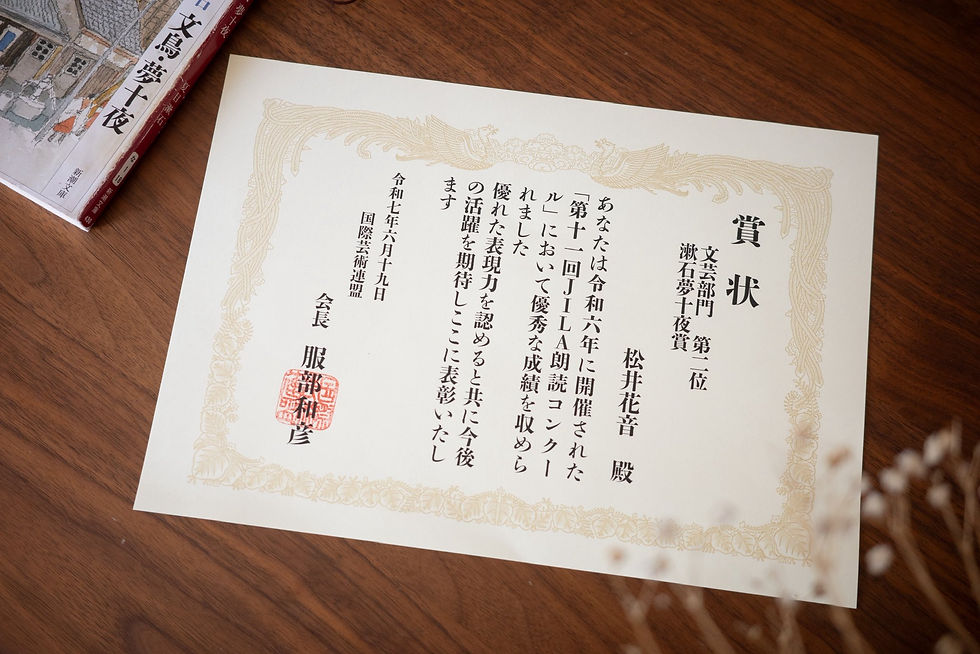 賞状
文芸部門 第二位
漱石夢十夜賞
松井花音 殿
あなたは令和六年に開催された
「第十一回JILA朗読コンクー
ル」において優秀な成績を収めら
れました
優れた表現力を認めると共に今後
の活躍を期待しここに表彰いたし
ます
令和七年六月十九日
国際芸術連盟
会長 服部和彦
文鳥・夢十夜
新潮文庫